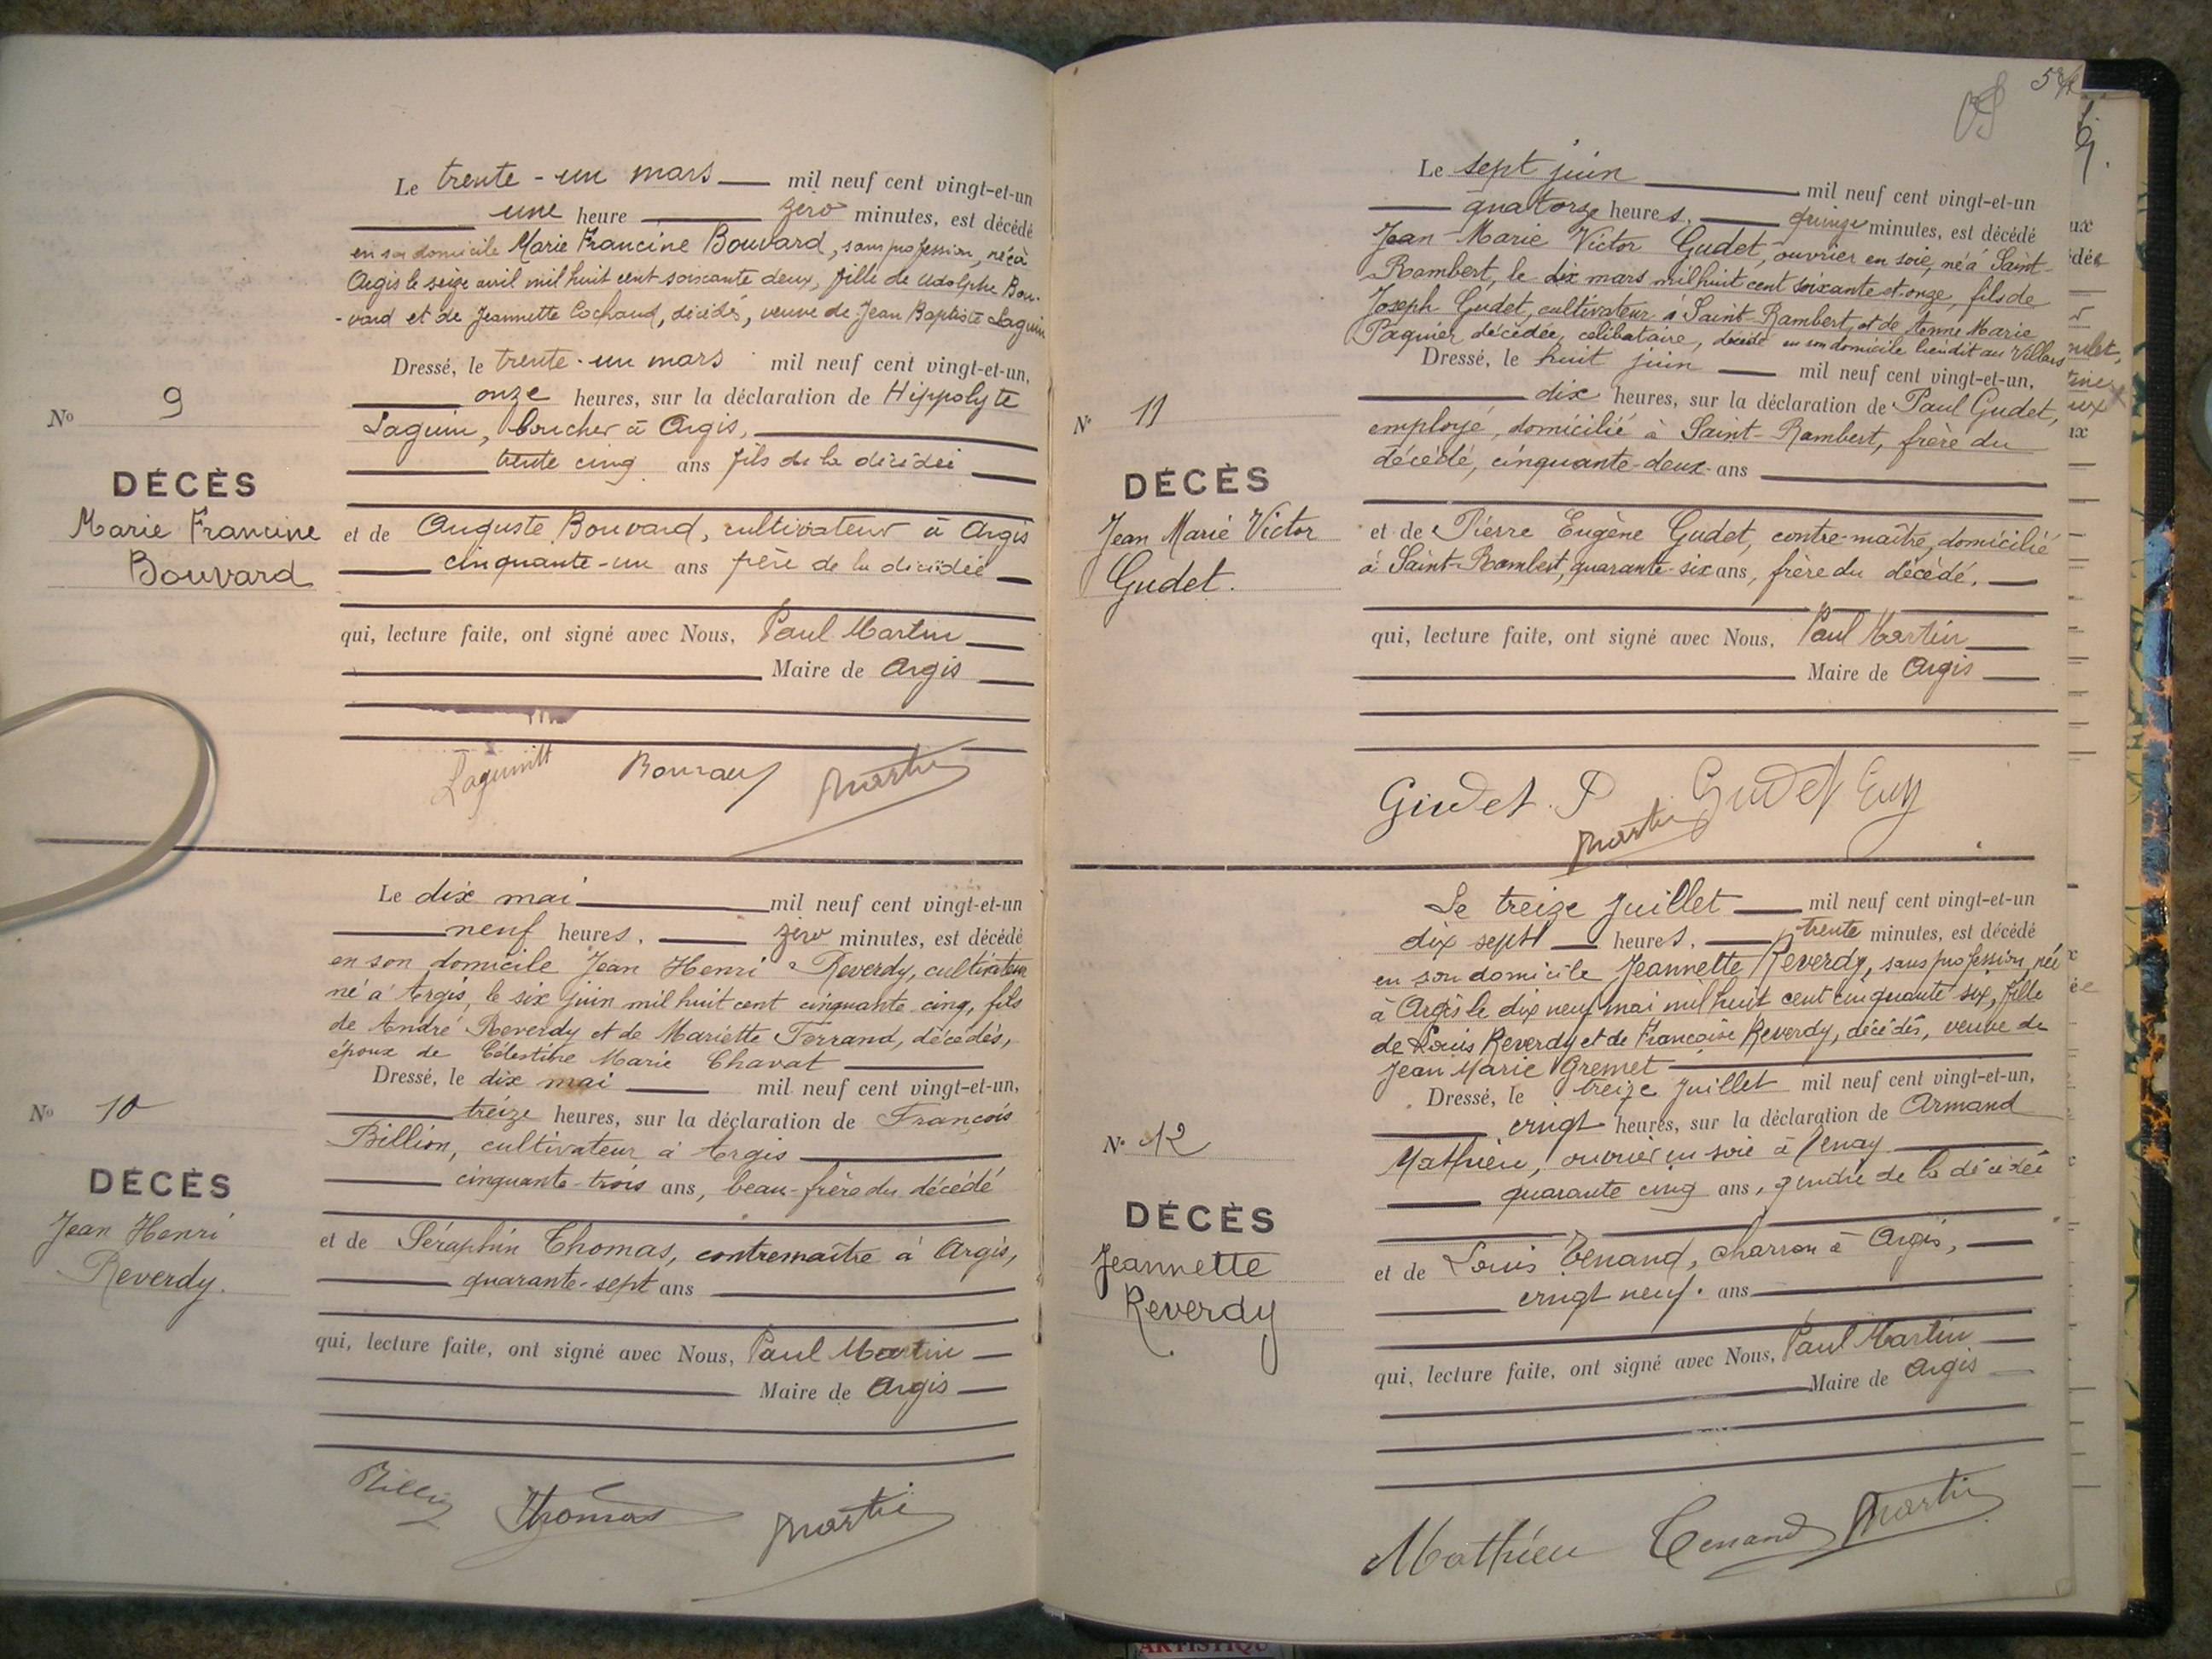 Le trente-un mars mil neuf cent vingt-et-un
une heure zéro minutes, est décédé
en son domicile Marie Francine Bouvard, sans profession, née à
Argis le seize avril mil huit cent soixante deux, fille de Adolphe Bou-
-vard et de Jeannette Cochaud, décédés, veuve de Jean Baptiste Laguin
Dressé, le trente-un mars mil neuf cent vingt-et-un,
onze heures, sur la déclaration de Hippolyte
Laguin, boucher à Argis,
trente cinq ans fils de la décédée
No 9
DÉCÈS
Marie Francine
Bouvard
et de Auguste Bouvard, cultivateur à Argis
cinquante-un ans frère de la décédée
qui, lecture faite, ont signé avec Nous, Paul Martin
Maire de Argis
Martin
Le dix mai mil neuf cent vingt-et-un
neuf heures, zéro minutes, est décédé
en son domicile Jean Henri Reverdy, cultivateur
né à Argis, le six juin mil huit cent cinquante cinq, fils
de André Reverdy et de Mariette Ferrand, décédés,
époux de Célestine Marie Chavat
Dressé, le dix mai mil neuf cent vingt-et-un,
treize heures, sur la déclaration de François
Billion, cultivateur à Argis
cinquante-trois ans, beau-frère du décédé
No 10
DÉCÈS
Jean Henri
Reverdy.
et de Séraphin Thomas, contremaître à Argis,
quarante-sept ans
qui, lecture faite, ont signé avec Nous, Paul Martin
Maire de Argis
Thomas Martin
Le sept juin mil neuf cent vingt-et-un
quatorze heures, quinze minutes, est décédé
Jean-Marie Victor Gudet, ouvrier en soie, né à Saint-
Rambert, le dix mars mil huit cent soixante et onze, fils de
Joseph Gudet, cultivateur à Saint-Rambert, et de Anne Marie
Paquier décédée, célibataire, décédé en son domicile lieu dit au Villars
Dressé, le huit juin mil neuf cent vingt-et-un,
dix heures, sur la déclaration de Paul Gudet,
employé, domicilié à Saint-Rambert, frère du
décédé, cinquante-deux ans
N° 11
DÉCÈS
Jean Marie Victor
Gudet.
et de Pierre Eugène Gudet, contre-maître, domicilié
à Saint-Rambert, quarante-six ans, frère du décédé.
qui, lecture faite, ont signé avec Nous, Paul Martin
Maire de Argis
Gudet P Martin Gudet Eug
Le treize Juillet mil neuf cent vingt-et-un
dix sept heures, trente minutes, est décédé
en son domicile Jeannette Reverdy, sans profession, née
à Argis le dix neuf mai mil huit cent cinquante six, fille
de Louis Reverdy et de Françoise Reverdy, décédés, veuve de
Jean Marie Gremet
Dressé, le treize Juillet mil neuf cent vingt-et-un,
vingt heures, sur la déclaration de Armand
Mathieu, ouvrier en soie à Tenay
quarante cinq ans, gendre de la décédée
N° 12
DÉCÈS
Jeannette
Reverdy
et de Louis Tenand, charron à Argis,
vingt neuf ans
qui, lecture faite, ont signé avec Nous, Paul Martin
Maire de Argis
Mathieu Tenand Martin